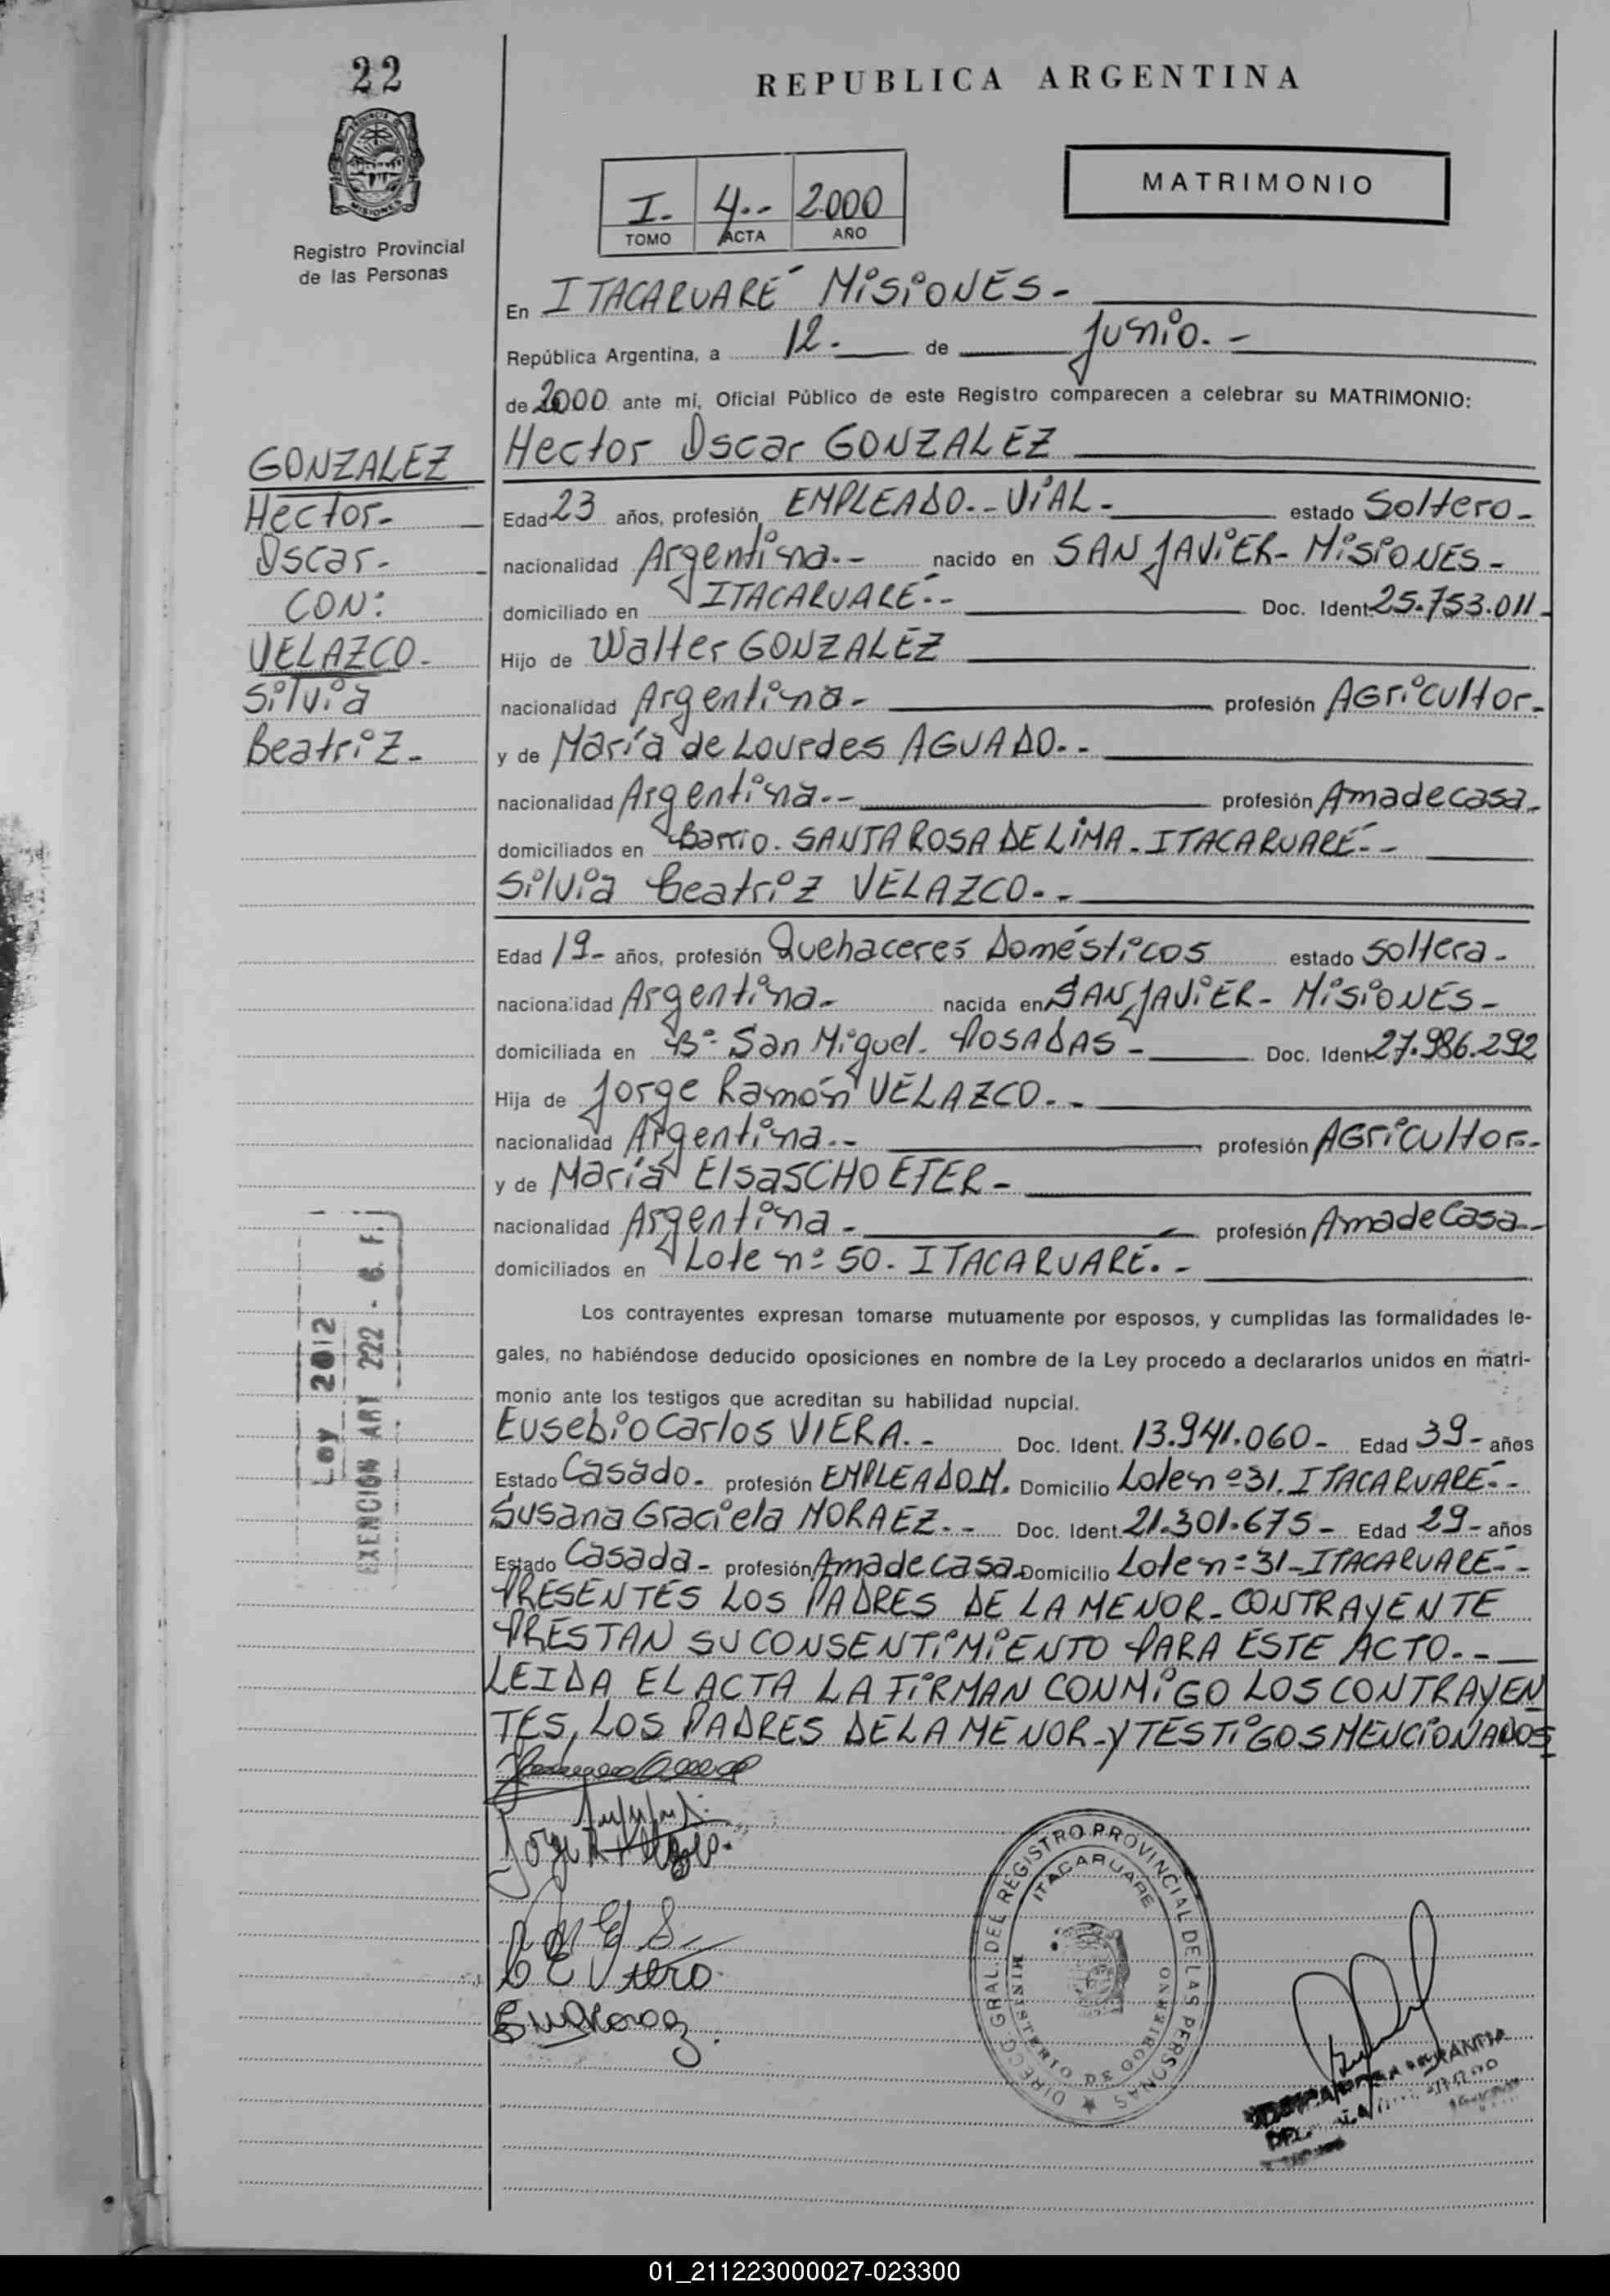 22
REPUBLICA ARGENTINA
MATRIMONIO
I. 4-- 2.000
TOMO ACTA AÑO
PROVINCIA DE MISIONES
Registro Provincial
de las Personas
En ITACARUARÉ MiSiONES-
República Argentina, a 12. de Junio.-
de 2000 ante mí, Oficial Público de este Registro comparecen a celebrar su MATRIMONIO:
GONZALEZ
Hector-
Oscar-
CON:
VELAZCO-
Silvia
Beatriz-
Hector Oscar GONZALEZ
Edad 23 años, profesión EMPLEADO.-ViAL- estado Soltero-
nacionalidad Argentina.- nacido en SAN JAViER- MiSiONES-
domiciliado en ITACARUARÉ.- Doc. Ident. 25.753.011-
Hijo de Walter GONZALEZ
nacionalidad Argentina- profesión AGricultor-
y de María de Lourdes AGUADO.-
nacionalidad Argentina.- profesión Amadecasa-
domiciliados en Barrio. SANTA ROSA DE LiMA-ITACARUARÉ.-
Silvia beatriz VELAZCO.-
Edad 19- años, profesión Quehaceres Domésticos estado soltera-
nacionalidad Argentina- nacida en SAN JAViER- MiSiONES-
domiciliada en Bº San Miguel. POSADAS- Doc. Ident. 27.986.292
Hija de Jorge Ramón VELAZCO.-
nacionalidad Argentina.- profesión AGricultor-
y de María ElsaSCHOEFER-
nacionalidad Argentina- profesión AmadeCasa-
domiciliados en Lote nº 50- ITACARUARÉ.-
Los contrayentes expresan tomarse mutuamente por esposos, y cumplidas las formalidades le-
gales, no habiéndose deducido oposiciones en nombre de la Ley procedo a declararlos unidos en matri-
monio ante los testigos que acreditan su habilidad nupcial.
Eusebio Carlos ViERA.- Doc. Ident. 13.941.060- Edad 39- años
Estado Casado- profesión EMPLEADO M. Domicilio Lote nº 31. ITACARUARÉ.-
Susana Graciela MORAEZ.- Doc. Ident. 21.301.675- Edad 29- años
Estado Casada- profesión Amadecasa- Domicilio Lote nº 31-ITACARUARÉ.-
PRESENTES LOS PADRES DE LA MENOR-CONTRAYENTE
PRESTAN SU CONSENTiMiENTO PARA ESTE ACTO.-
LEIDA EL ACTA LA FiRMAN CONMiGO LOS CONTRAYEN
TES, LOS PADRES DE LA MENOR-Y TESTiGOS MENCiONADOS
Ley 2012
EXENCION ART 222 - 6. F.
DIRECC. GRAL. DEL REGISTRO PROVINCIAL DE LAS PERSONAS
ITACARUARE
MINISTERIO DE GOBIERNO
01_211223000027-023300